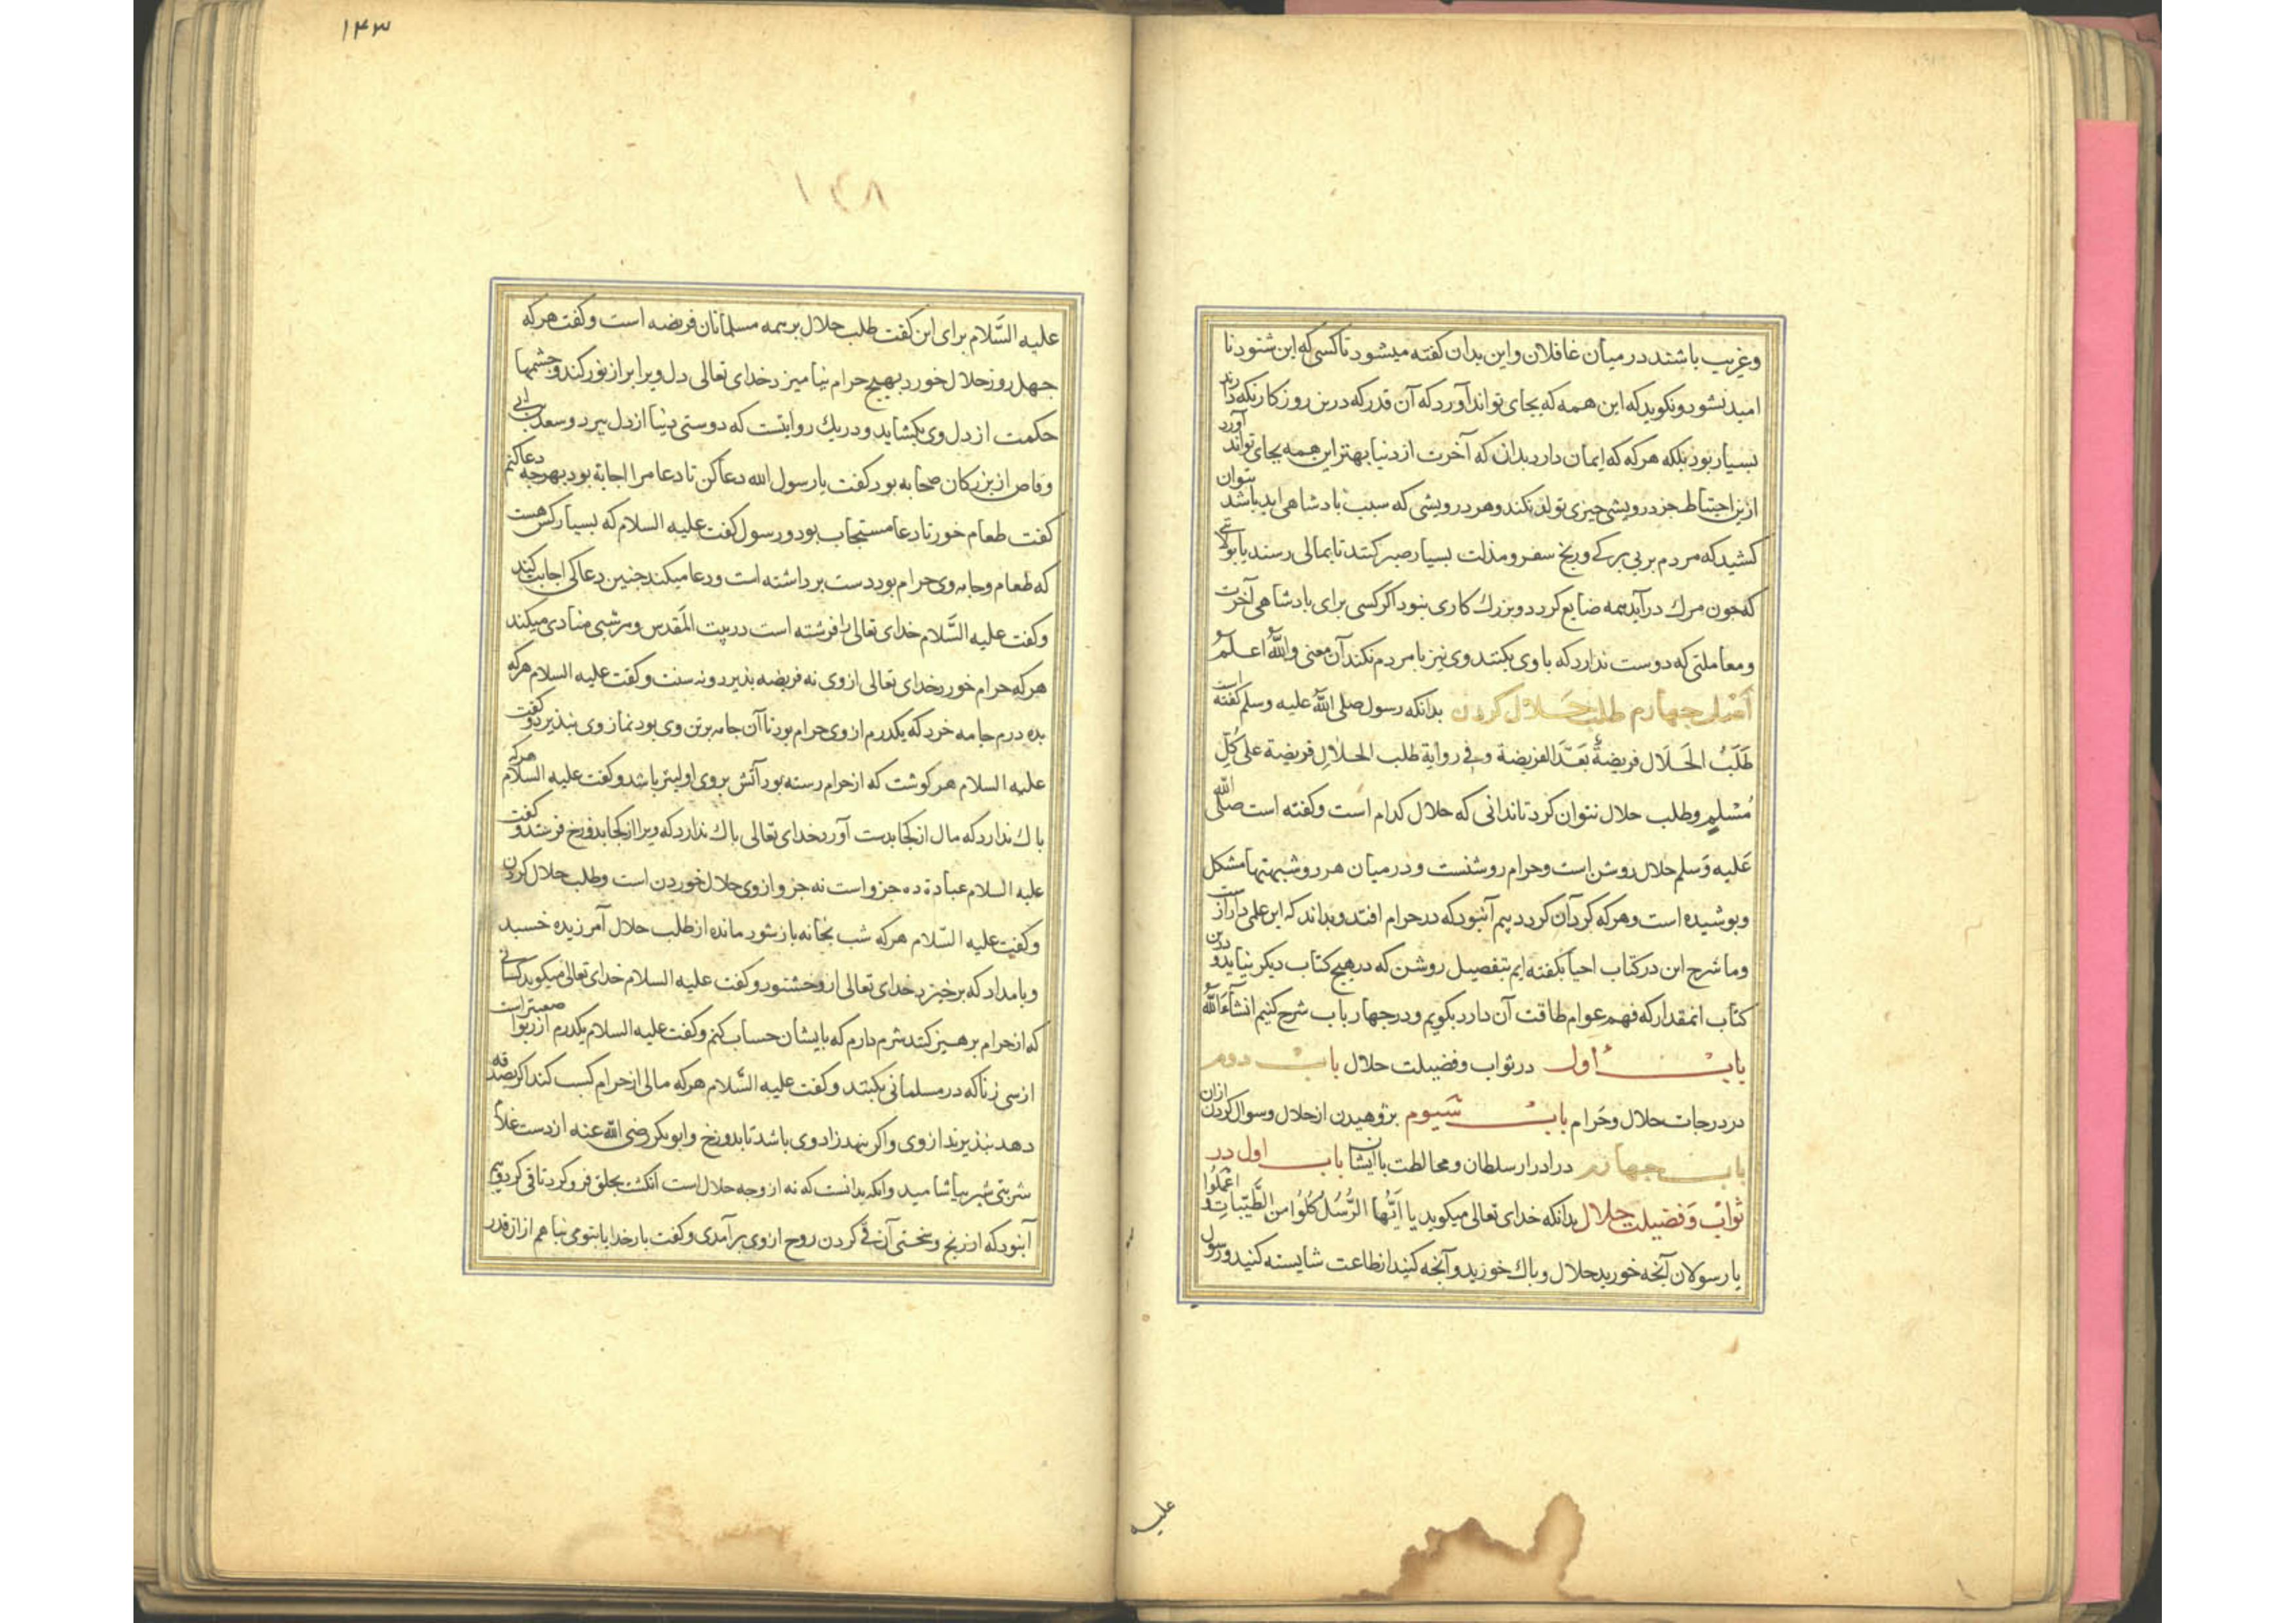 وغریب باشند در میان غافلان واین بدان کفته میشود تا کسی که این شنود نا
امید نشود ونکوید که این همه که بجای تواند آورد که آن قدر که درین روزکار نکه دارند
بسیار بود بلکه هرکه که ایمان دارد بدان که آخرت از دنیا بهتر این همه بجای تواند آورد
ازین احتیاط جز درویشی چیزی تولد نکند وهر درویشی که سبب بادشاهی ابد باشد بتوان
کشید که مردم بر بی برکی ورنج سفر ومذلت بسیار صبر کنند تا بمالی رسند یا بولایتی
که جون مرك درآید همه ضایع کردد وبزرك کاری نبود اکر کسی برای بادشاهی آخرت
ومعاملتی که دوست ندارد که با وی بکنند وی نیز با مردم نکند آن معنی والله اعلم
اصل جهارم طلب حلال کردن بدانکه رسول صلی الله علیه وسلم کفته است
طَلَبُ الحَلَال فریضةٌ بَعَدَ الفریضة وفی روایة طلب الحلالِ فریضة علی کُلِّ
مُسْلِمٍ وطلب حلال نتوان کرد تا ندانی که حلال کدام است وکفته است صلی الله
عَلیه وَسلم حلال روشن است وحرام روشنست ودر میان هر دو شبهتها مشکل
وبوشیده است وهرکه کرد آن کردد بیم آنبود که در حرام افتد وبداند که این علمی دراز است
وما شرح این در کتاب احیا بکفته ایم بتفصیل روشن که در هیج کتاب دیکر نیاید ودرین
کتاب انمقدار که فهم عوام طاقت آن دارد بکویم ودر جهار باب شرح کنیم انشآءَالله
باب اول در ثواب وفضیلت حلال باب دوم
در درجات حلال وحَرام باب سیوم بژوهیدن از حلال وسوال کردن ازان
باب جهارم در ادرار سلطان ومخالطت با ایشان باب اول در
ثواب وَفضیلت حلال بدانکه خدای تعالی میکوید یا اَیُّهَا الرُّسُلُ کُلُوا من الطَّیِّباتِ وَ اعْمَلُوا
یا رسولان آنجه خورید حلال وباك خورید وآنجه کنید از طاعت شایسته کنید ورسول
علیه
۱۴۳
۱۳۸
علیه السَّلام برای این کفت طلب حلال بر همه مسلمانان فریضه است وکفت هرکه
جهل روز حلال خورد بهیج حرام نیامیزد خدای تعالی دل ویرا برا از نور کند وجشمها
حکمت از دل وی بکشاید ودر یك روایتست که دوستی دنیا از دل ببرد وسعد بن ابی
وقاص از بزرکان صحابه بود کفت یا رسول الله دعا کن تا دعا مرا اجابة بود بهرجه دعا کنم
کفت طعام خور تا دعا مستجاب بود ورسول کفت علیه السلام که بسیار کس هست
که طعام وجامه وی حرام بود دست برداشته است ودعا میکند جنین دعا کی اجابت کند
وکفت علیه السَّلام خدای تعالی را فرشته است در بیت المَقدس وهر شبی منادی میکند
هرکه حرام خورد خدای تعالی از وی نه فریضه بذیرد ونه سنت وکفت علیه السلام هرکه
بده درم جامه خرد که یکدرم ازوی حرام بود تا آن جامه بر تن وی بود نماز وی نبذیرد وکفت
علیه السلام هر کوشت که از حرام رسته بود آتش بروی اولیتر باشد وکفت علیه السلام هرکه
باك ندارد که مال از کجا بدست آورد خدای تعالی باك ندارد که ویرا از کجا بدوزخ فرستد وکفت
علیه السلام عبادة ده جزو است نه جزو ازوی حلال خوردن است وطلب حلال کردن
وکفت علیه السَّلام هرکه شب بخانه باز شود مانده از طلب حلال آمرزیده خسبد
وبامداد که برخیزد خدای تعالی ازو خشنود وکفت علیه السلام خدای تعالی میکوید کسانی
که از حرام برهیز کنند شرم دارم که با ایشان حساب کنم وکفت علیه السلام یکدرم از ربوا صعبتر است
از سی زنا که در مسلمانی بکنند وکفت علیه السَّلام هرکه مالی از حرام کسب کند اکر بصدقه
دهد نبذیرند ازوی واکر بنهد زاد وی باشد تا بدوزخ وابو بکر رضی الله عنه از دست غلام
شربتی شیر بیاشامید وانکه بدانست که نه از وجه حلال است انکشت بحلق فرو کرد تا قی کرد وبیم
آنبود که از رنج وسختی آن قی کردن روح ازوی برآمدی وکفت بار خدایا بتو می بناهم از ان قدر